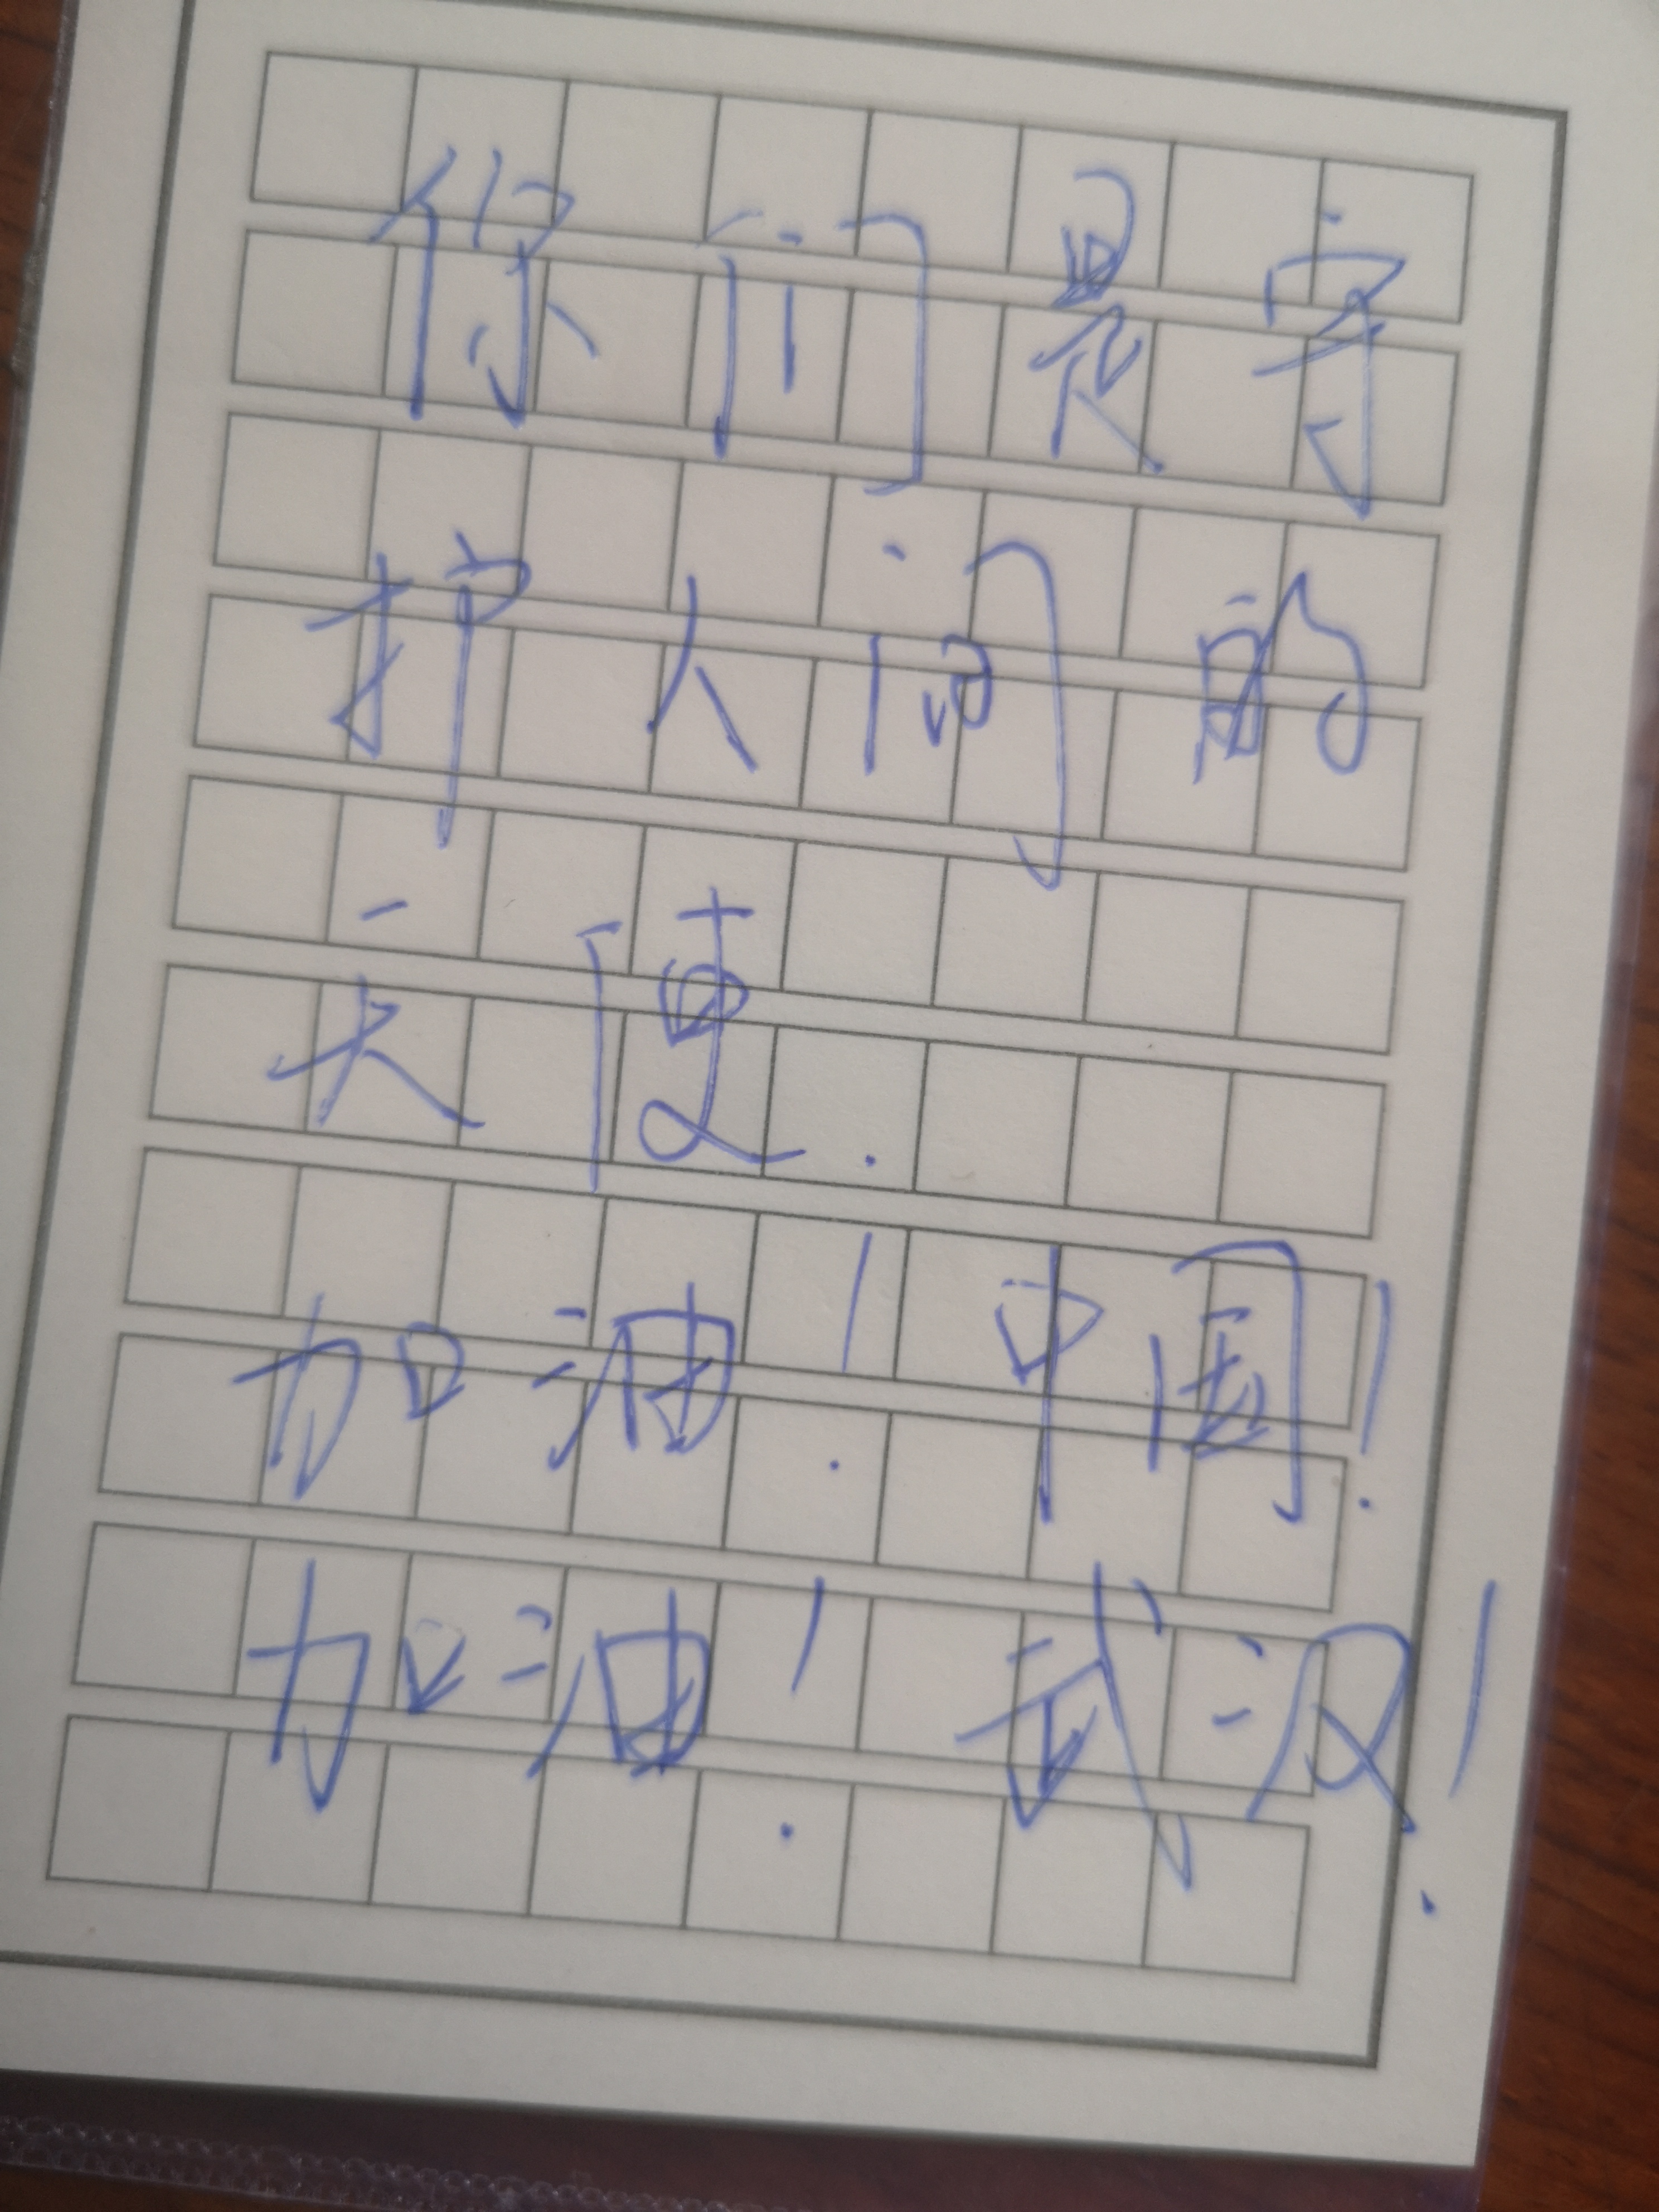 你们是守
护人间的
天使.
加油!中国!
加油!武汉!